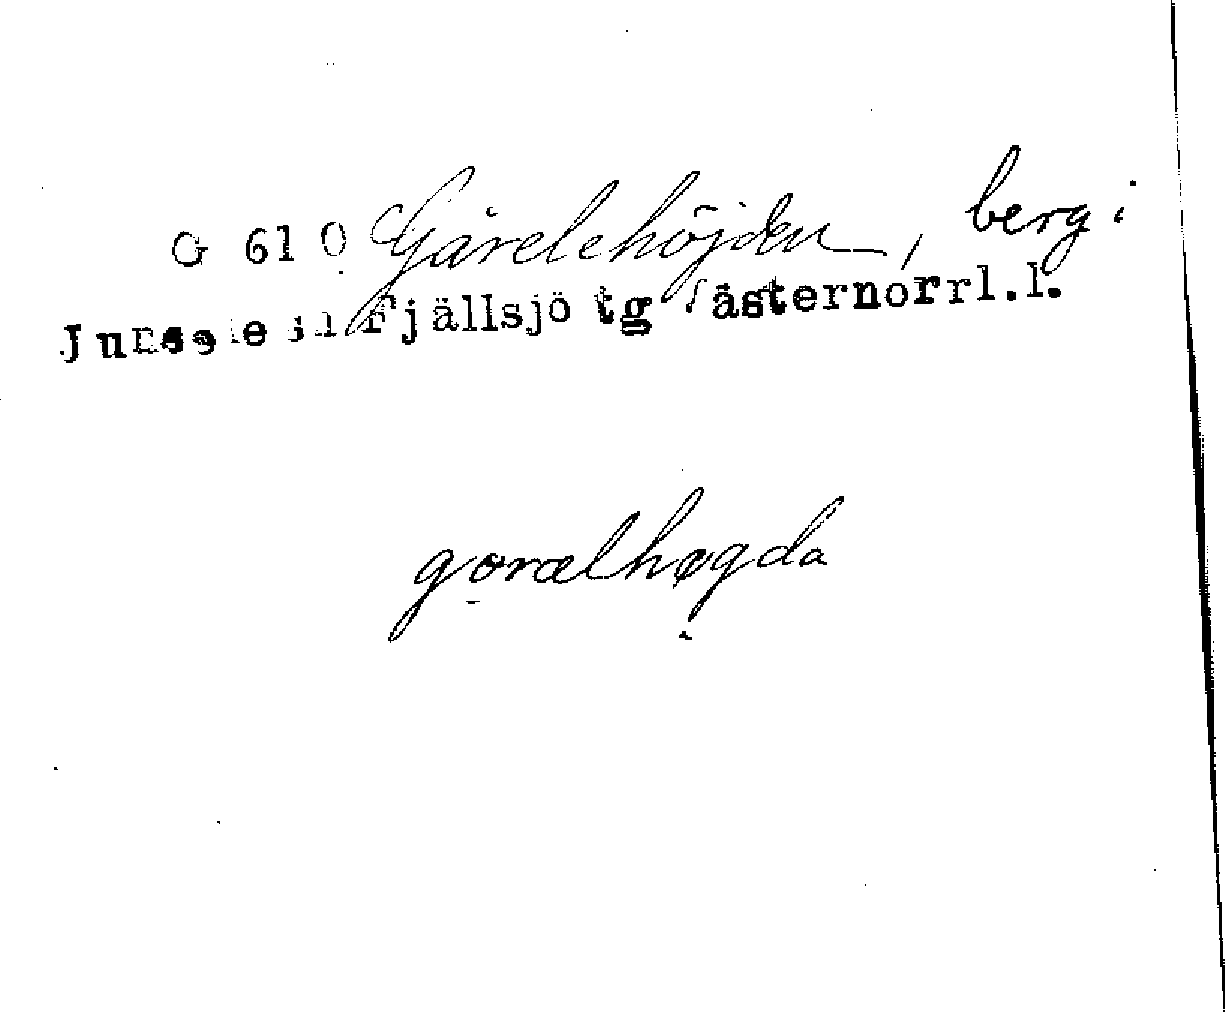 G 61 0 Gårelehöjden, berg i
Junsele sn Fjällsjö tg Västernorrl.l.
goralhøgda